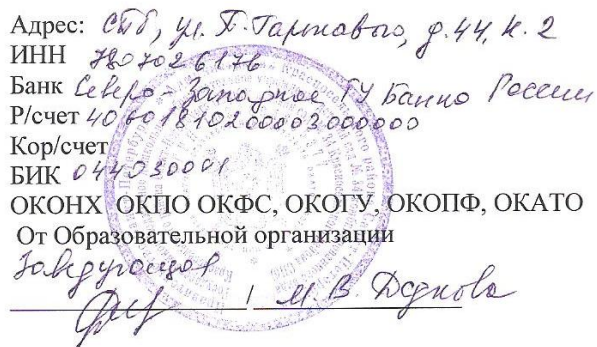 Адрес: СПб, ул. П. Гарькавого, д. 44, к. 2
ИНН 7807026176
Банк Северо-Западное ГУ Банка России
Р/счет 40601810200003000000
Кор/счет
БИК 044030001
ОКОНХ ОКПО ОКФС, ОКОГУ, ОКОПФ, ОКАТО
От Образовательной организации
Заведующая
/ М. В. Дедкова